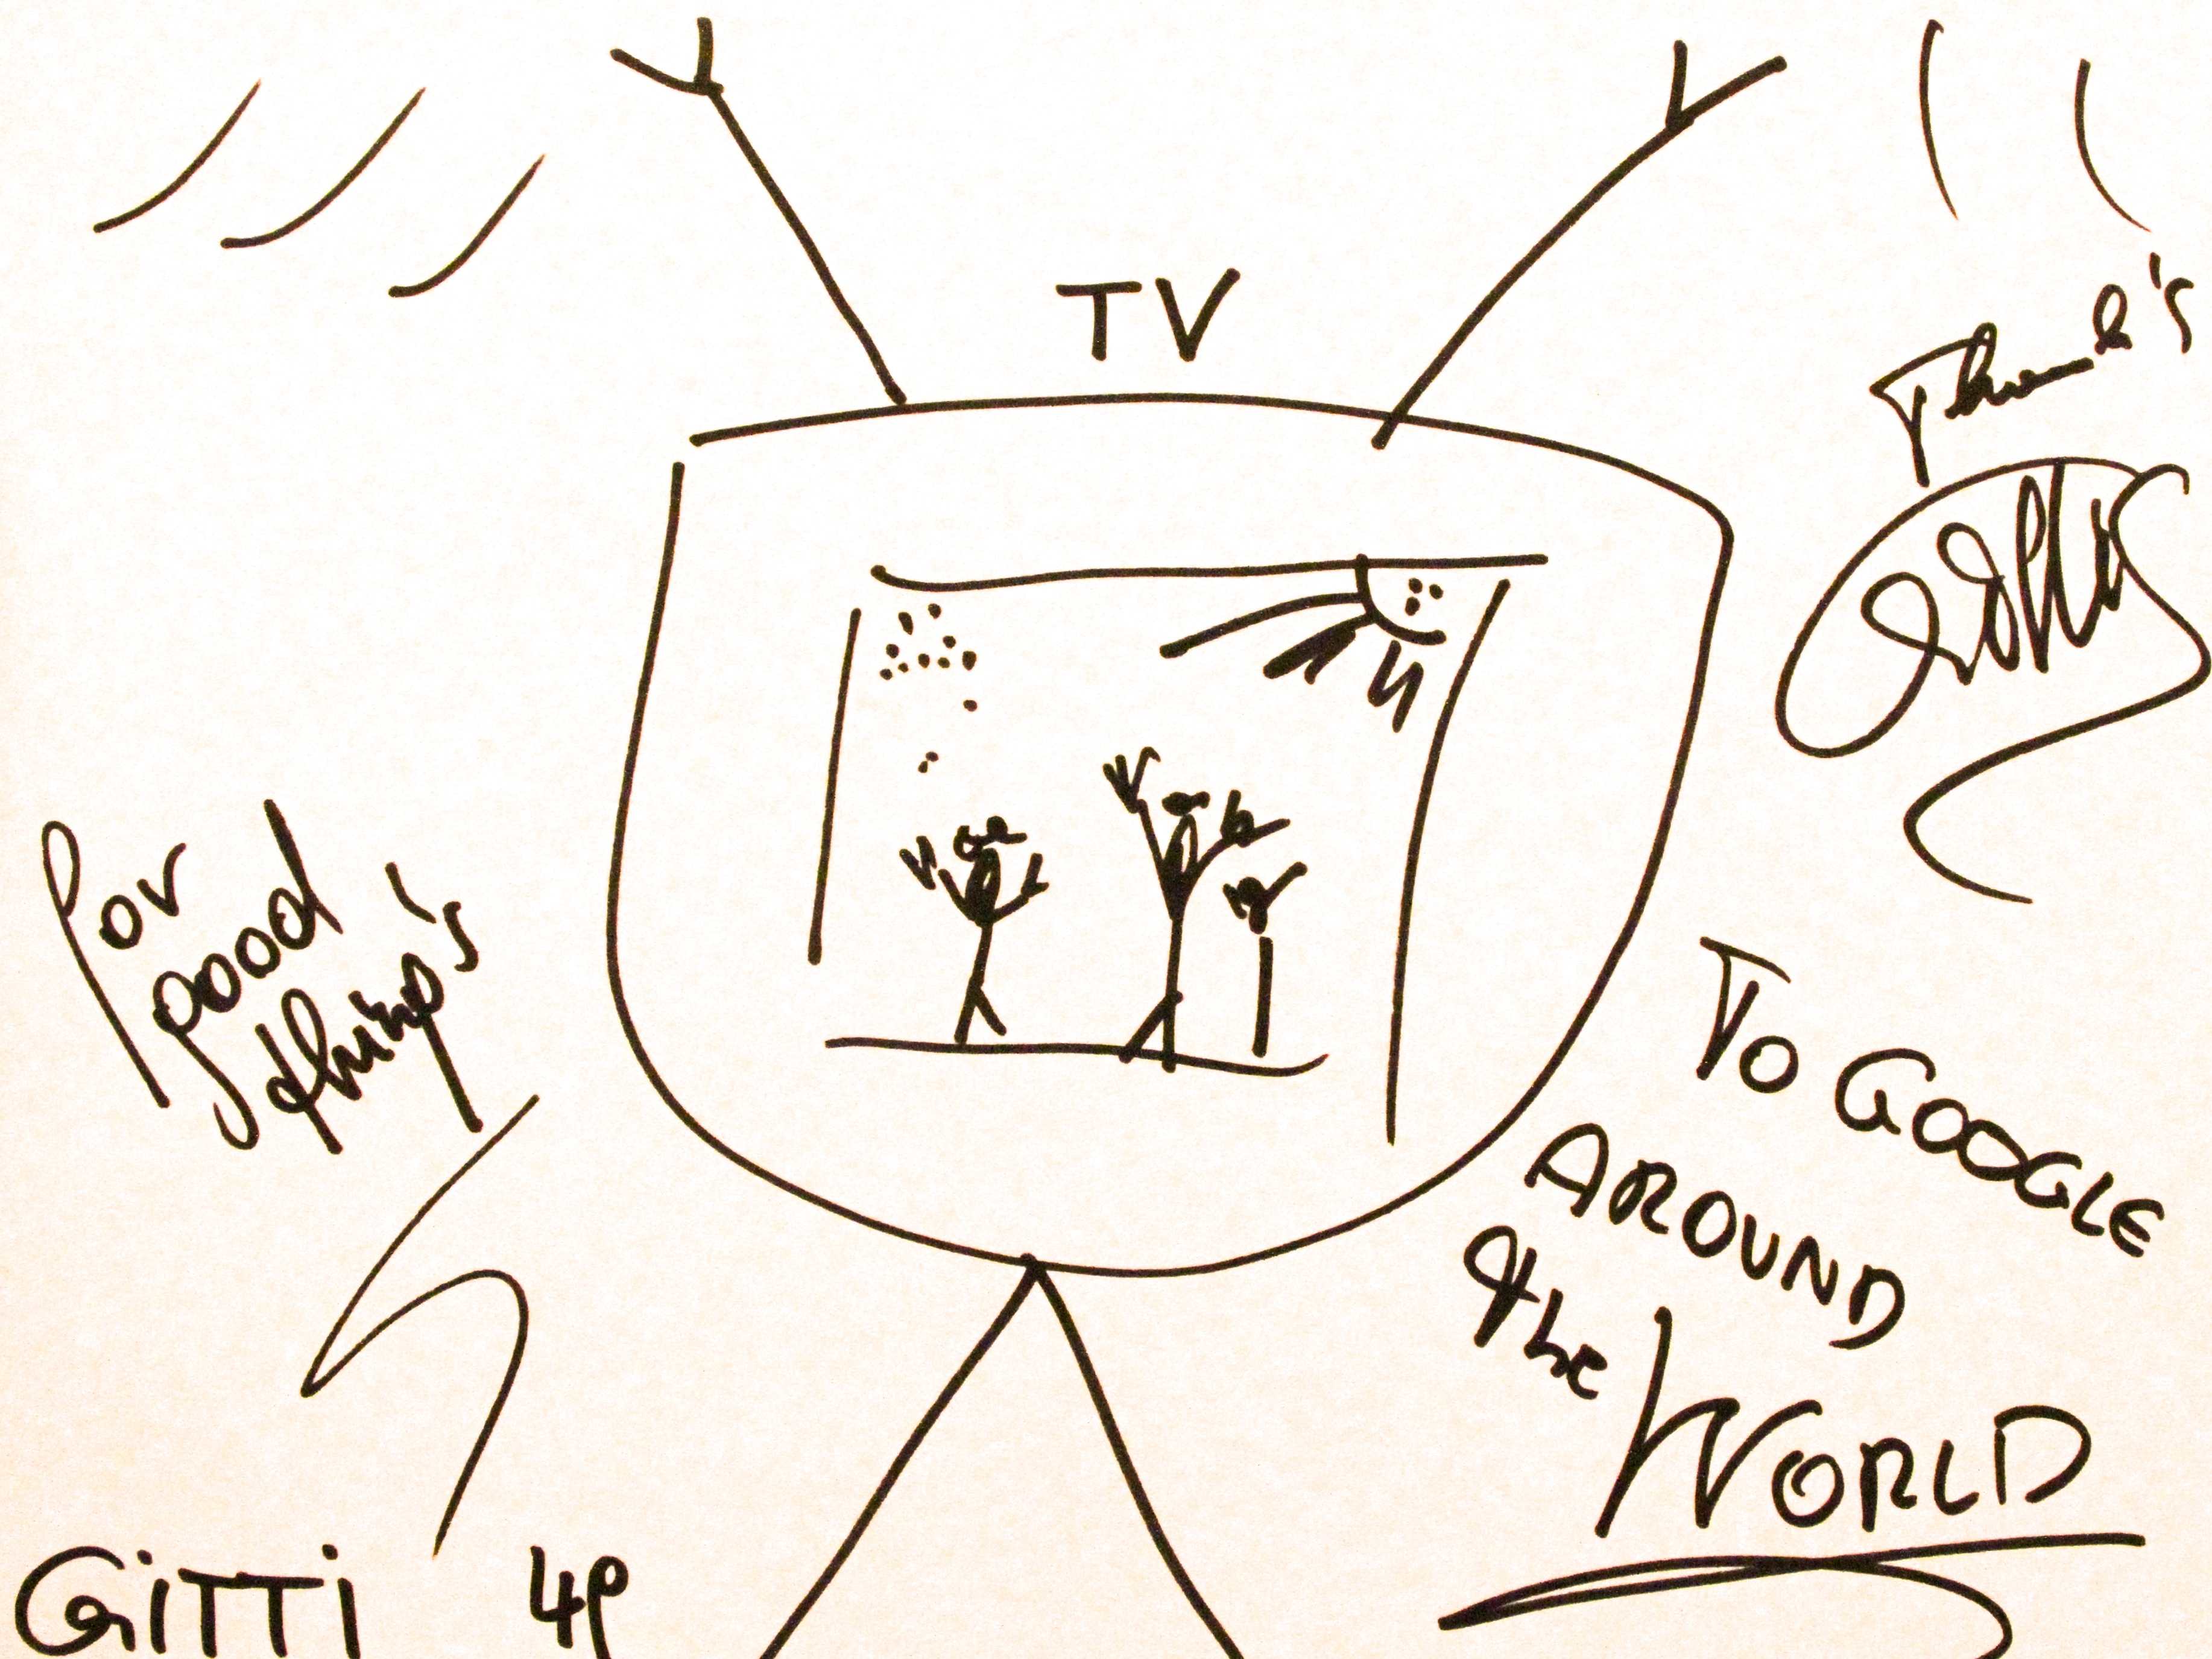 TV
Thank's
for
good
thing's
To GOOGLE
AROUND
the
WORLD
GiTTi 49